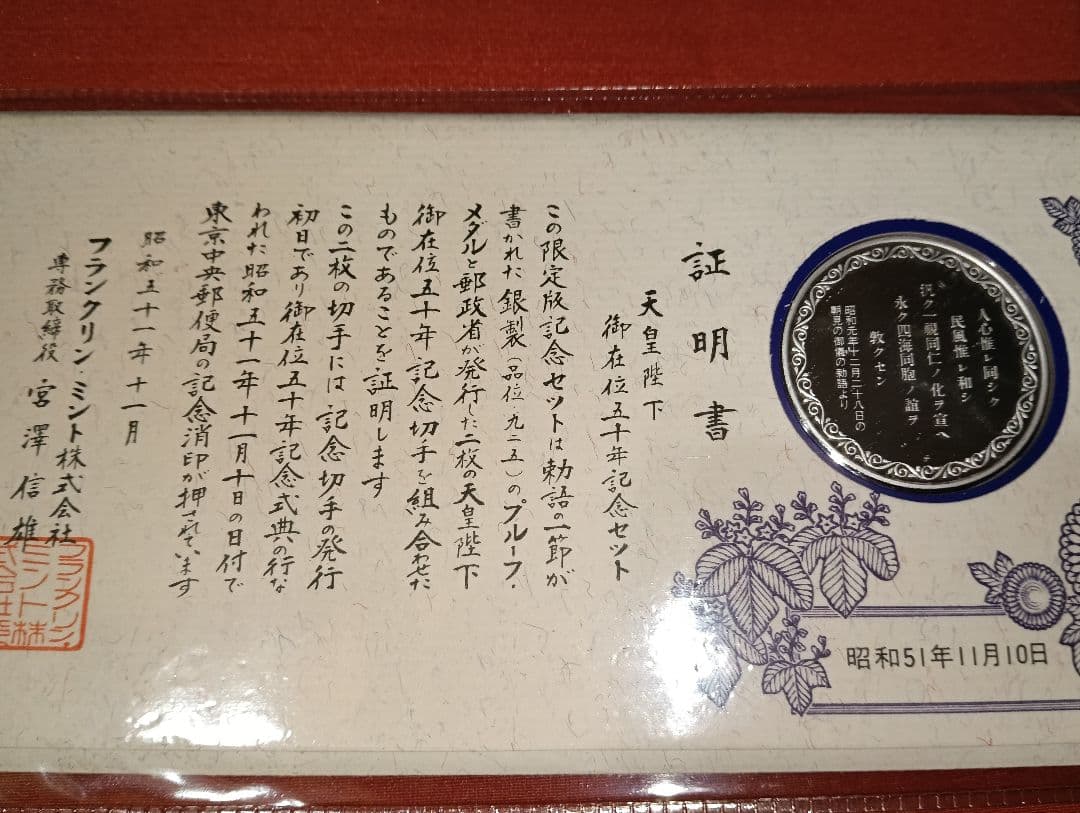 人心惟レ同シク
民風惟レ和シ
汎ク一視同仁ノ化ヲ宣ヘ
永ク四海同胞ノ誼ヲ
敦クセン
昭和元年十二月二十八日の
朝見の御儀の勅語より
昭和51年11月10日
証明書
天皇陛下
御在位五十年記念セット
この限定版記念セットは勅語の一節が
書かれた銀製(品位九二五)のプルーフ・
メダルと郵政省が発行した二枚の天皇陛下
御在位五十年記念切手を組み合わせた
ものであることを証明します
この二枚の切手には記念切手の発行
初日であり御在位五十年記念式典の行な
われた昭和五十一年十一月十日の日付で
東京中央郵便局の記念消印が押されています
昭和五十一年十一月
フランクリン・ミント株式会社
専務取締役 宮澤信雄
フランクリン・
ミント株
式会社